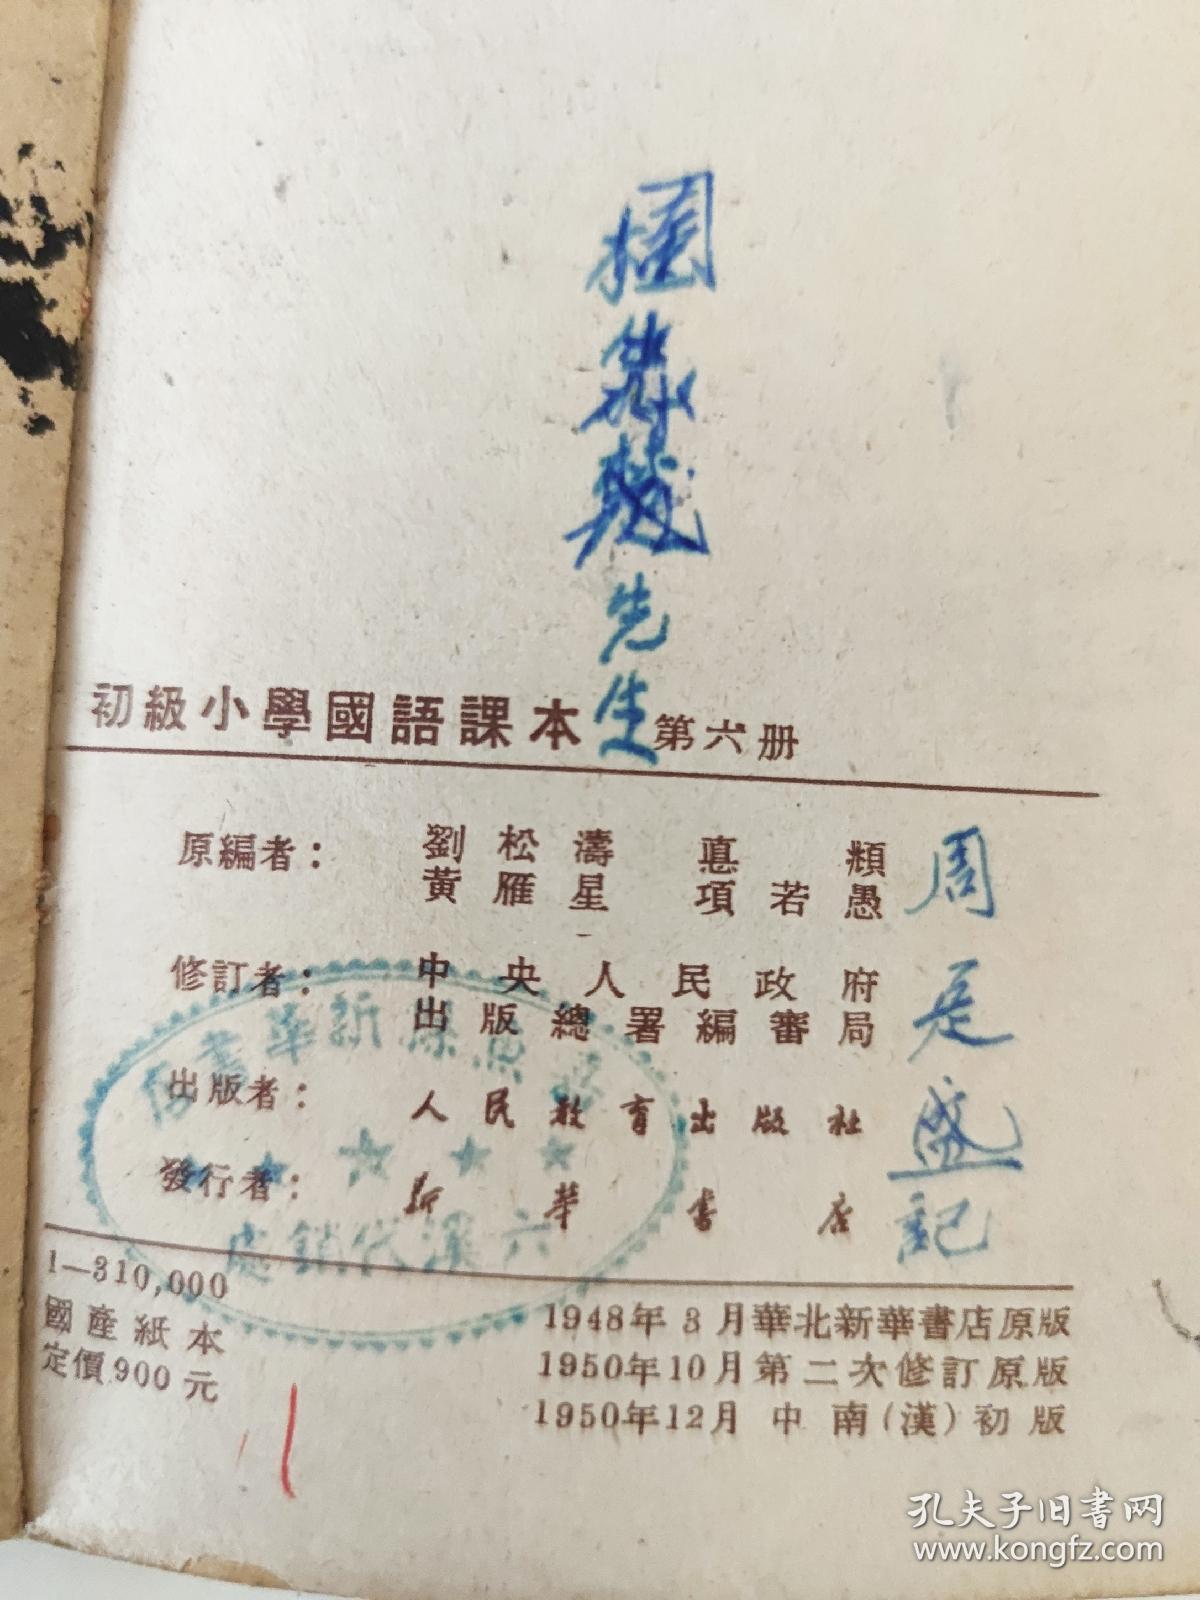 先生
初級小學國語課本 第六册
原編者： 劉松濤 惪頫
黃雁星 項若愚
修訂者： 中央人民政府
出版總署編審局
出版者： 人民教育出版社
發行者： 新華書店
周是盛記
新華書
六溪代銷處
1—310,000
國產紙本
定價900元
1948年3月華北新華書店原版
1950年10月第二次修訂原版
1950年12月 中南(漢)初版
孔夫子旧书网
www.kongfz.com